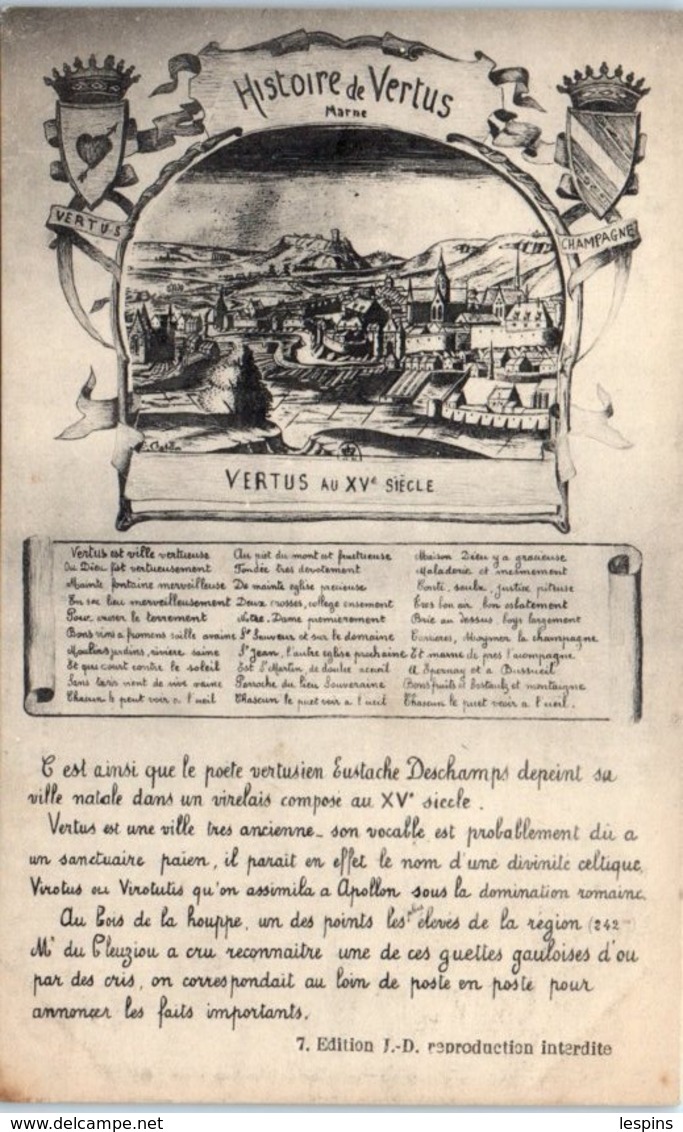 Histoire de Vertus
Marne
VERTUS
CHAMPAGNE
VERTUS AU XVe SIÈCLE
Vertus est ville vertueuse
Ou Dieu fist vertueusement
Mainte fontaine merveilleuse
En sec lieu merveilleusement
Pour curer le torrement
Bons vins a fromens saille avaine
Moulins jardins, riviere saine
Et qui court contre le soleil
Sans taris nent de vive vaine
Chacun le peut voir a l'ueil
Au piet du mont est fructueuse
Fondée tres devotement
De mainte eglise precieuse
Deux crosses, college ensement
Notre-Dame premierement
St Sauveur et sur le demaine
St Jean, l'autre eglise prochaine
Est St Martin, de doulce acueil
Perroche du lieu Souveraine
Chascun le puet voir a l'ueil
Maison Dieu y a gracieuse
Maladerie et
justice piteuse
Tres bon air, bon esbatement
Brie au dessus, boys largement
la champagne
Et marne de pres l'acompagne
A Epernay et a Bussueil
Bons fruits et et montaigne
Chascun le puet veoir a l'ueil.
C est ainsi que le poète vertusien Eustache Deschamps depeint sa
ville natale dans un virelais compose au XVe siecle.
Vertus est une ville tres ancienne_ son vocable est probablement dû a
un sanctuaire paien, il parait en effet le nom d'une divinité celtique,
Virotus ou Virotutis qu'on assimila a Apollon sous la domination romaine.
Au bois de la houppe, un des points les plus élevés de la région (242 m)
Mr du Cleuziou a cru reconnaitre une de ces guettes gauloises d'ou
par des cris, on correspondait au loin de poste en poste pour
annonçer les faits importants.
7. Edition J.-D. reproduction interdite
lespins